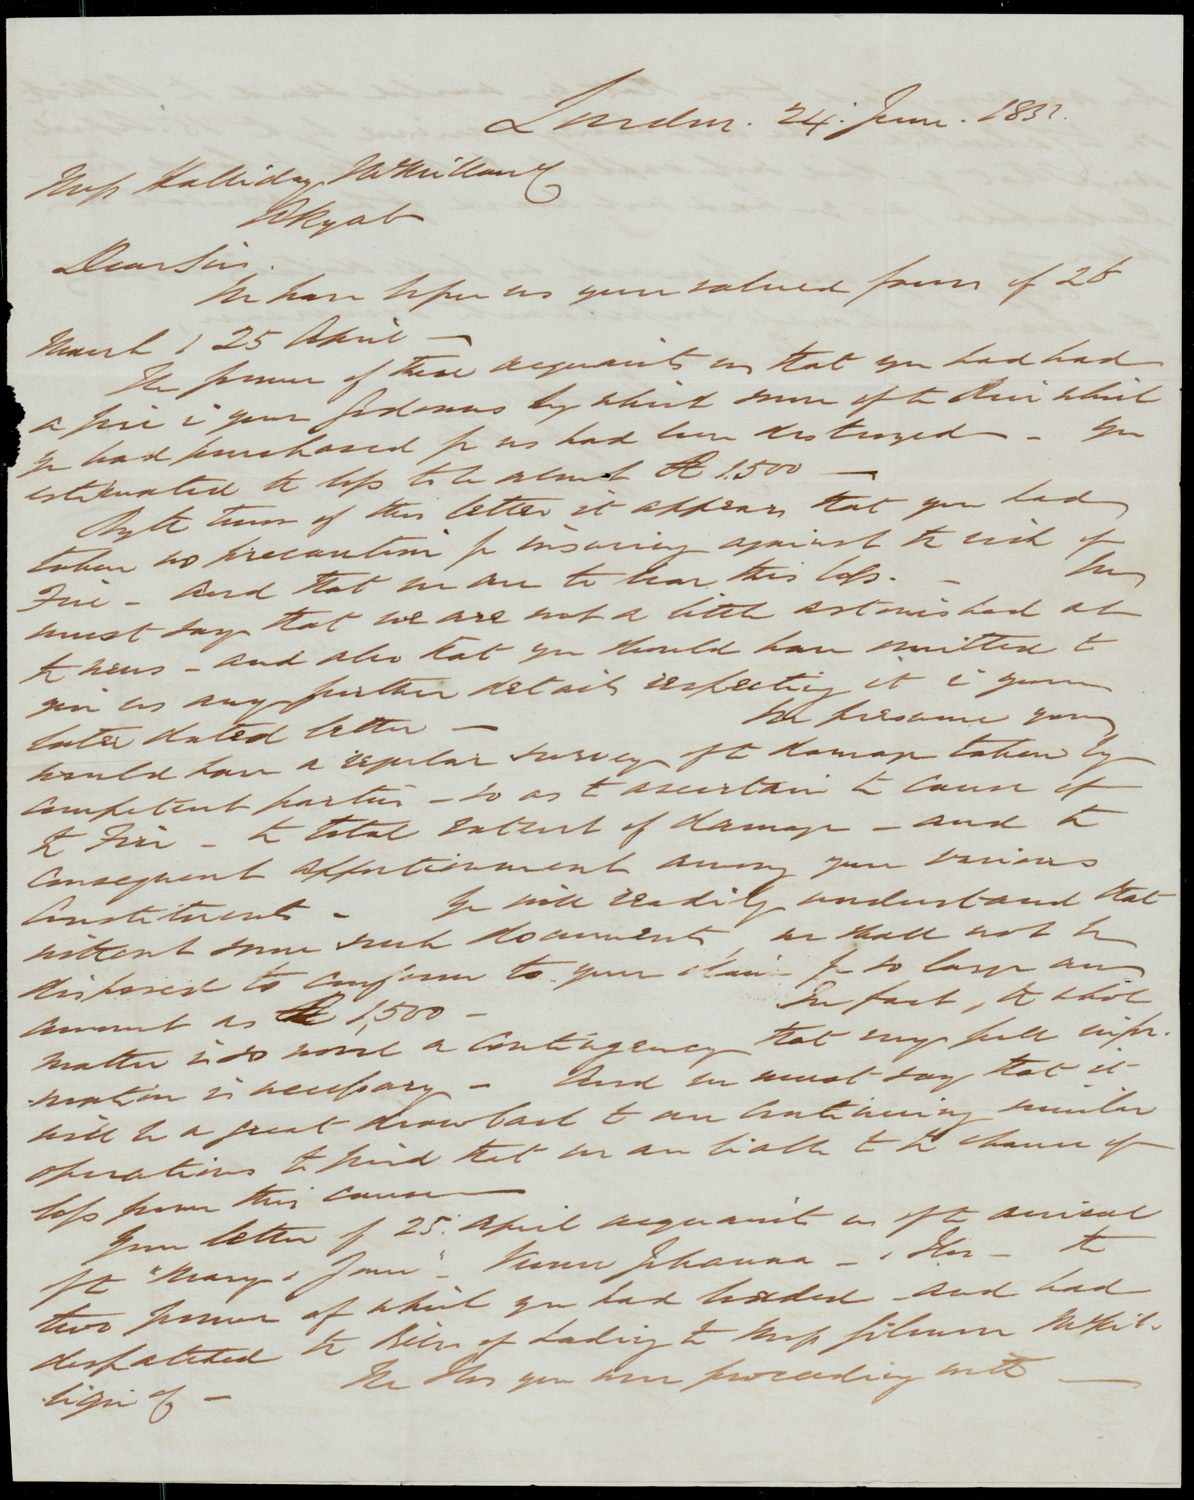 London. 24. June. 185
Mess Halliday McMillan &
Akyab
Dear Sirs.
We have before us your valued favors of 28
March & 25 April —
The former of these acquaints us that you had had
a fire i your Godowns by which some of the Rice which
you had purchased for us had been destroyed — You
estimated the loss to be about R 1,500 —
By the tenor of this letter it appears that you had
taken no precaution for insuring against the risk of
Fire — and that we are to bear this loss. — We
must say that we are not a little astonished at
the news — and also that you should have omitted to
give us any further details respecting it i your
later dated letter — We presume you
would have a regular survey of the damage taken by
competent parties — so as to ascertain the cause of
the Fire — the total extent of damage — and the
consequent apportionment among your various
Constituents — You will readily understand that
without some such documents, we shall not be
disposed to conform to your claim for so large an
amount as R 1,500 — In fact, the whole
matter is so novel a contingency that very full infor-
mation is necessary — And we must say that it
will be a great drawback to our continuing similar
operations to find that we are liable to the chance of
loss from this cause —
Your letter of 25. April acquaints us of the arrival
of the "Mary & Jane" — Johanna — & Ilos — the
two former of which you had loaded and had
despatched the Bills of Lading to Mess Gilmore McKil-
ligin & — The Ilos you were proceeding with —